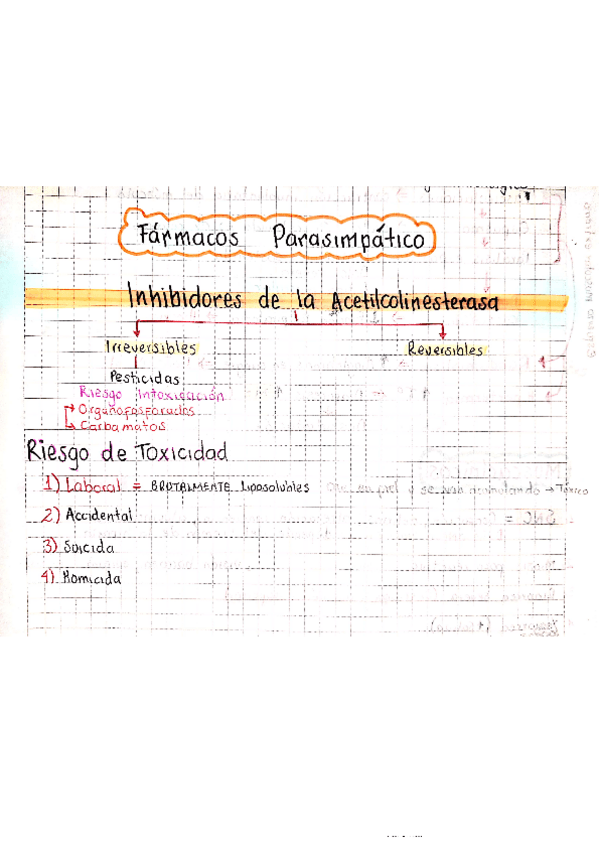 Fármacos Parasimpático
Inhibidores de la Acetilcolinesterasa
Irreversibles
Reversibles
Pesticidas
Riesgo Intoxicación
Organofosforados
Carbamatos
Riesgo de Toxicidad
1) Laboral = BRUTALMENTE liposolubles
2) Accidental
3) Suicida
4) Homicida